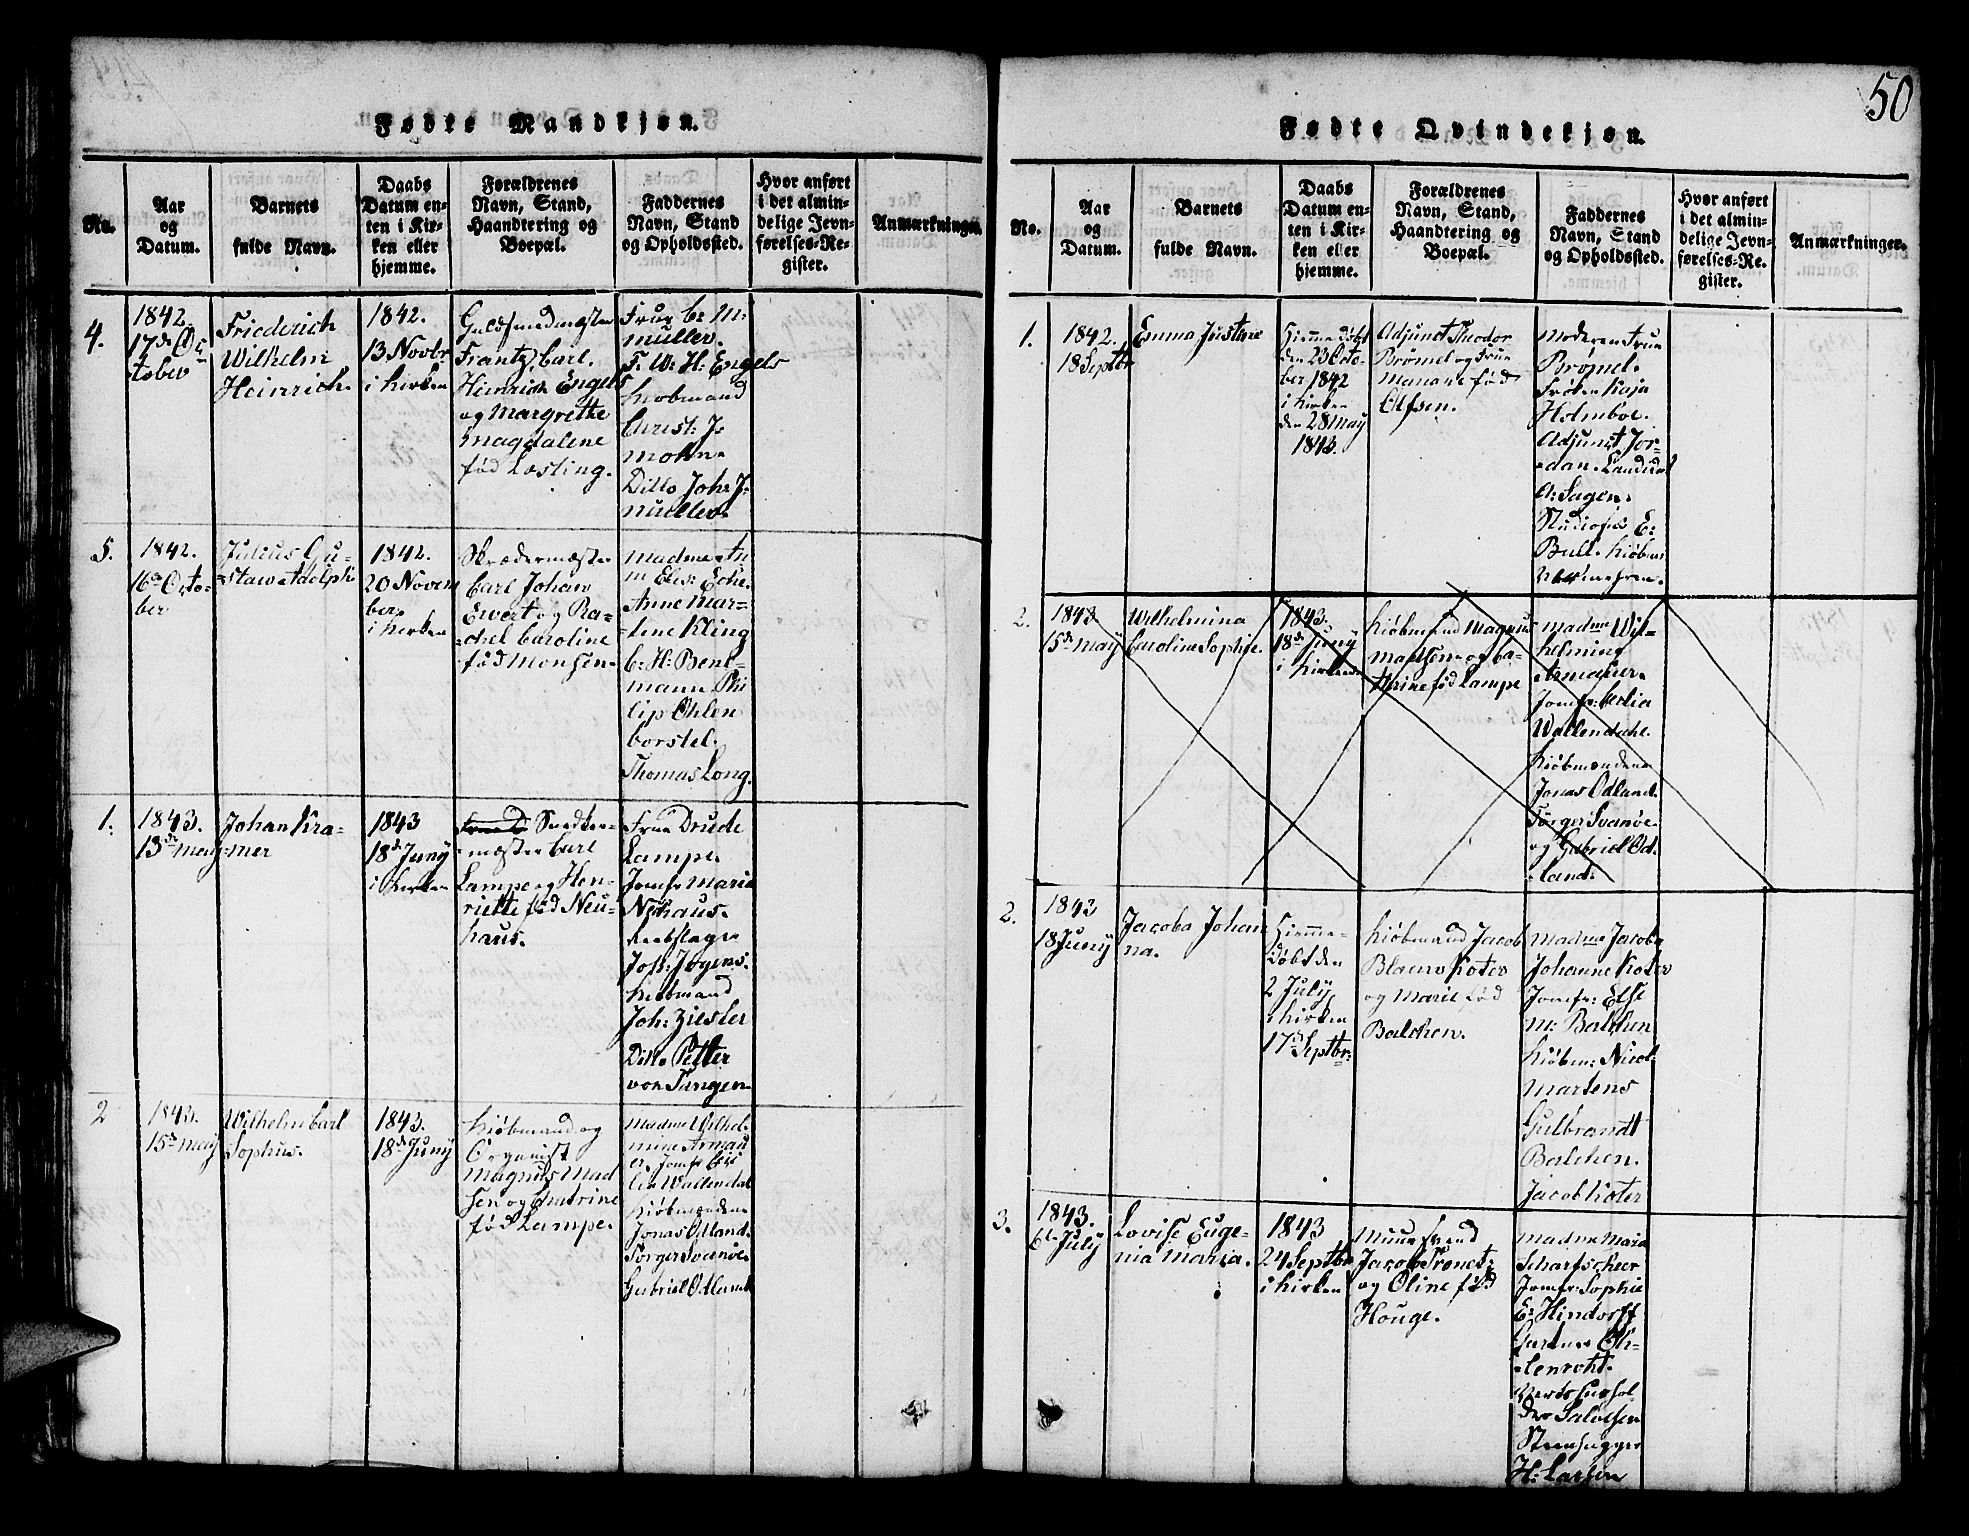 50
Fødte Mandkjøn.
No.
Aar
og
Datum.
Barnets
fulde Navn.
Daabs
Datum en-
ten i Kir-
ken eller
hjemme.
Forældrenes
Navn, Stand,
Haandtering og
Boepæl.
Faddernes
Navn, Stand
og Opholdssted.
Hvor anført
i det almin-
delige Jevn-
førelses-Re-
gister.
Anmærkninger.
4.
1842.
17de Oc
tober
Friederich
Wilhelm
Heinrich.
1842.
13 Novbr
i Kirken
Guldsmedmester
Frantz Carl
Heinrich Engels
og Margrethe
Magdalene
fød Losting.
Frue C: M:
Muller.
F. W: H: Engels
Kiobmand
Christ: J:
Mohn.
Ditto Joh: J:
Muller.
5.
1842.
16de Octo-
ber
Julius Gu-
staw Adolph
1842.
20 Novem
ber.
i Kirken
Skrædermæster
Carl Johan
Ewert og Ra-
chel Caroline
fød Monsen.
Madme An
Elis: Ecke.
Anne Mar-
tine Kling
C: H: Bene-
mann. Phi
lip Ohlen
borstel.
Thomas Long.
1.
1843.
13de May
Johan Kra-
mer
1843
18de Juny
i Kirken
Snedker-
mæster Carl
Lampe og Hen-
riette fød Neu-
haus.
Frue Drude
Lampe.
Jomfr Marie
Nyhaus.
Reebslager
Joh: Jogens.
Kiobmand
Joh: Ziesler
Ditto Petter
von Tangen.
2
1843.
15de May
Wilhelm Carl
Sophus.
1843.
18de Juny
Kiobmand og
Organist
Magnus Mad
sen og Chatrine
fød Lampe.
Madme Wilhel
mine Armau
er. Jomfr Ceci
lia Wallendal
Kiøbmændene
Jonas Odland.
Torger Svanøe.
Gabriel Odland
Fødte Qvindekjøn.
No.
Aar
og
Datum.
Barnets
fulde Navn.
Daabs
Datum en-
ten i Kir-
ken eller
hjemme.
Forældrenes
Navn, Stand,
Haandtering og
Boepæl.
Faddernes
Navn, Stand
og Opholdssted.
Hvor anført
i det almin-
delige Jevn-
førelses-Re-
gister.
Anmærkninger.
1.
1842.
18 Septbr
Emma Justine
Hiemme døbt
den 23 Octo-
ber 1842
i Kirken
den 28 May
1843.
Adjunct Theodor
Brømel og Frue
fød
Olfsen.
Moderen Frue
Brømel.
Frøken Kaja
Holmboe.
Adjunct Jor-
dan.
A: Sagen.
Studiosus E:
Bull. Kiøbm:
2.
1843
15de May
Wilhelmina
Caroline Sophie.
1843.
18de Juny
i Kirken
Kiøbmand Magnus
Madsen og Ca-
thrine fød Lampe
Madme Wil-
helmine
Armauer.
Jomfr: Cecilia
Wallendahl.
Kiøbmændene
Jonas Odland.
Torger Svanøe.
og Gabriel Od-
land.
2.
1843
18 Juny
Jacoba Johan
na.
Hiemme-
døbt den
2 July
i Kirken
17de Septbr:
Kiøbmand Jacob
Blauw Koter
og Marie fød
Balchen.
Madme Jacoba
Johanne Koter
Jomfr: Else
M: Balchen
Kiøbm: Nicol:
Martens
Gulbrandt
Balchen.
Jacob Koter
3.
1843.
6te July
Lovise Euge-
nia Maria.
1843
24 Septbr
i Kirken
Muursvend
Jacob Tronet:
og Oline fød
Houge.
Madme Maria
Scharfscheer
Jomfr: Sophie
E: Hindorff
Gartner Oh-
lenroht.
Vertshushol
der Salvesen
Steenhugger
H: Larsen